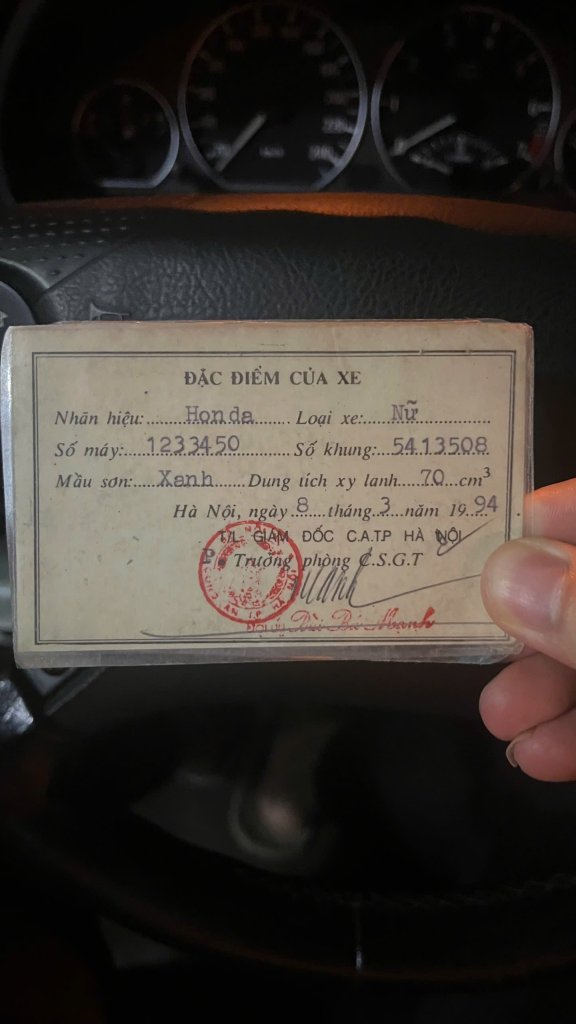 ĐẶC ĐIỂM CỦA XE
Nhãn hiệu:.......Honda.......Loại xe:.....Nữ..............
Số máy:....1233450..........Số khung:..5413508
Mầu sơn:.....Xanh......Dung tích xy lanh....70...cm³
Hà Nội, ngày 8....tháng.3...năm 19..94
T/L. GIÁM ĐỐC C.A.T.P HÀ NỘI
Trưởng phòng C.S.G.T